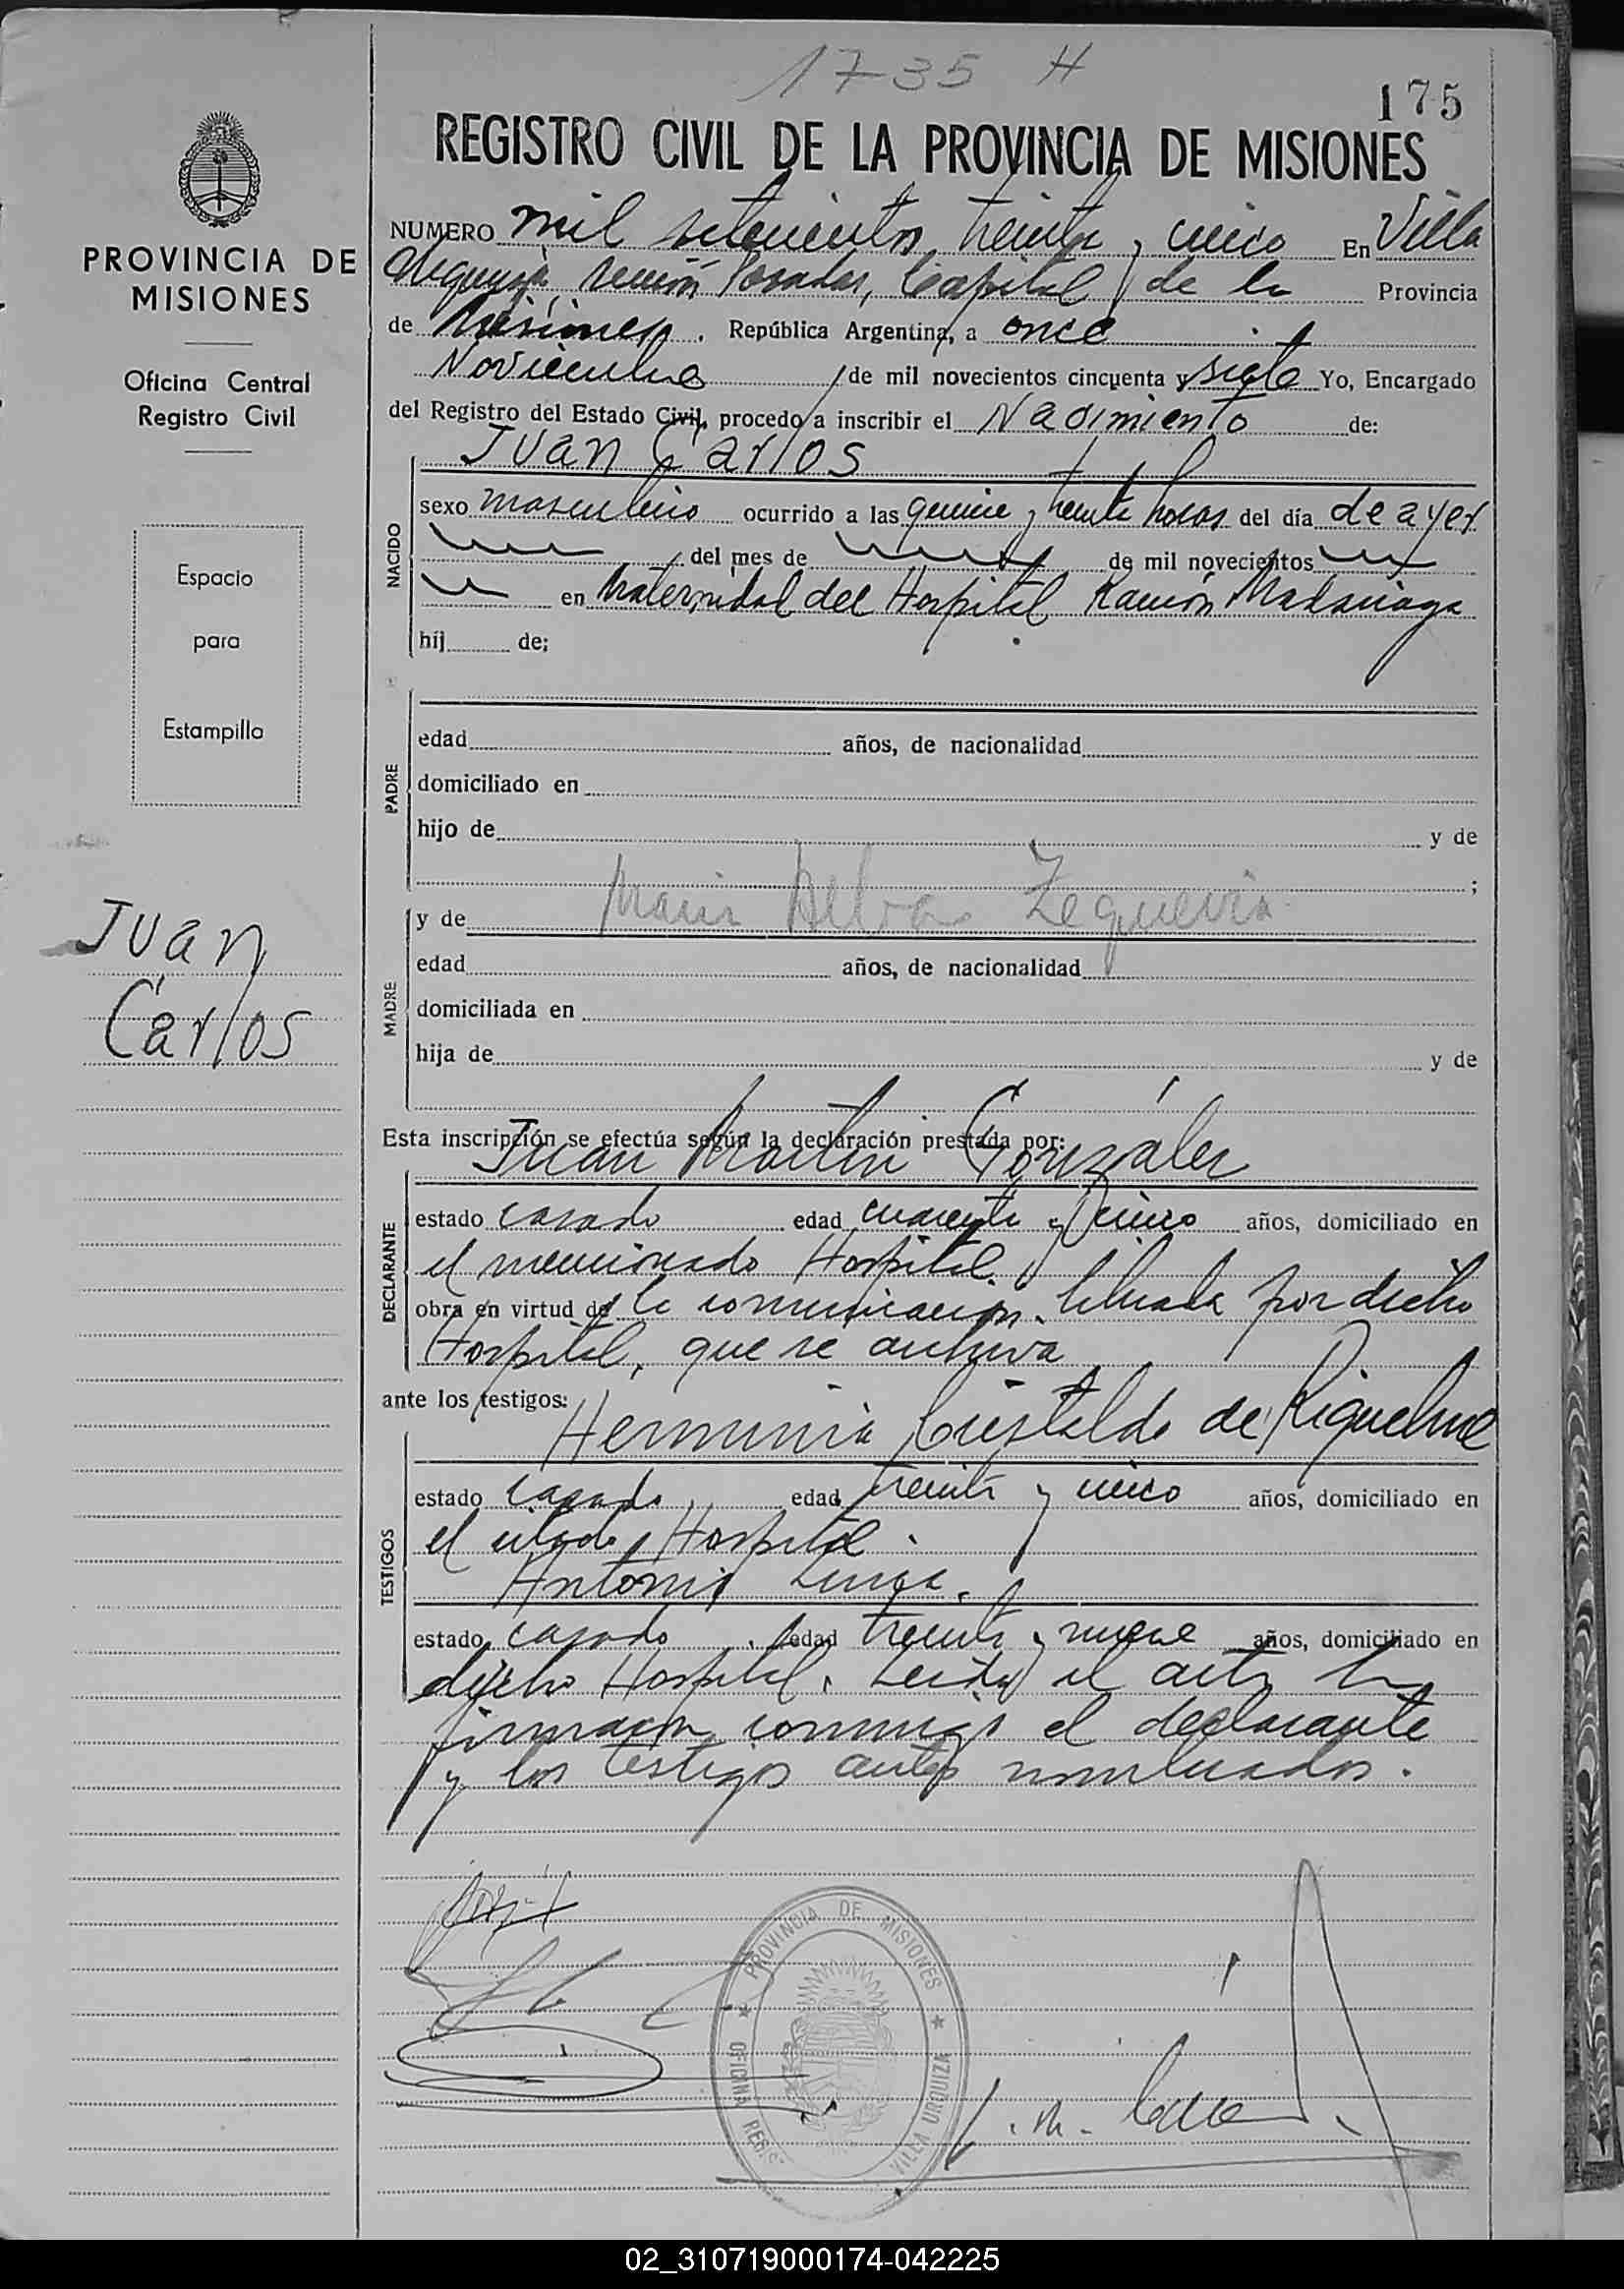 1735 H
175
REGISTRO CIVIL DE LA PROVINCIA DE MISIONES
PROVINCIA DE
MISIONES
Oficina Central
Registro Civil
Espacio
para
Estampilla
Juan
Carlos
NUMERO mil setecientos treinta y cinco En Villa
Urquiza, sección Posadas, Capital de la Provincia
de Misiones. República Argentina, a once
Noviembre de mil novecientos cincuenta y siete Yo, Encargado
del Registro del Estado Civil, procedo a inscribir el Nacimiento de:
Juan Carlos
NACIDO
sexo masculino ocurrido a las quince y treinta horas del día de ayer
del mes de de mil novecientos
en Maternidad del Hospital Ramón Madariaga
hij de;
PADRE
edad años, de nacionalidad
domiciliado en
hijo de y de
;
MADRE
y de Maria Zequeira
edad años, de nacionalidad
domiciliada en
hija de y de
Esta inscripción se efectúa según la declaración prestada por:
Juan Martin González
DECLARANTE
estado casado edad cuarenta y cinco años, domiciliado en
el mencionado Hospital.
obra en virtud de la comunicación librada por dicho
Hospital, que se archiva
ante los testigos:
Herminia Cristaldo de Riquelme
TESTIGOS
estado casada edad treinta y cinco años, domiciliado en
el citado Hospital.
Antonio
estado casado edad treinta y nueve años, domiciliado en
dicho Hospital. Leída el acta la
firmaron conmigo el declarante
y los testigos antes nombrados.
PROVINCIA DE MISIONES
OFICINA REGIS.
VILLA URQUIZA
02_310719000174-042225